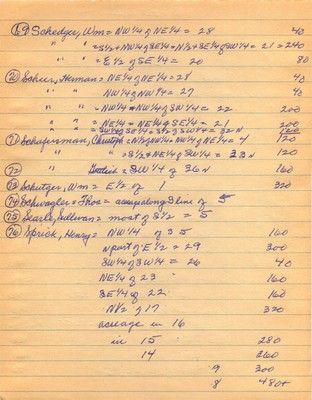 69 Schedger, Wm = NW 1/4 of NE 1/4 = 28 40
" " = S 1/2 + NW 1/4 of SE 1/4 = N 1/2 + SE 1/4 of SW 1/4 = 21 = 240
" " = E 1/2 of SE 1/4 = 20 80
70 Scheer, Herman = NE 1/4 of NE 1/4 = 28 40
" " NW 1/4 of NW 1/4 = 27 40
" " = NW 1/4 + NW 1/4 of SW 1/4 = 22 200
" " = NE 1/4 = NE 1/4 of SE 1/4 = 21 200
" " = SW 1/4 of SE 1/4 = S 1/2 of SW 1/4 = 32 N 120
71 Schaperman, = N 1/2 of NW 1/4 = NW 1/4 of NE 1/4 = 4 120
" " = S 1/2 + NE 1/4 of SW 1/4 = 33 N 120
72 " = SW 1/4 of 36 N 160
73 Schutzer, Wm = E 1/2 of 1 320
74 Schwagler = Thos = acreage along S line of 5
75 Searle, Sullivan = most of S 1/2 = 5
76 Sprick, Henry = NW 1/4 of 35 160
N part of E 1/2 = 29 300
SW 1/4 of SW 1/4 = 26 40
NE 1/4 of 23 160
SE 1/4 of 22 160
N 1/2 of 17 320
acreage in 16
in 15 280
14 260
9 300
8 480+